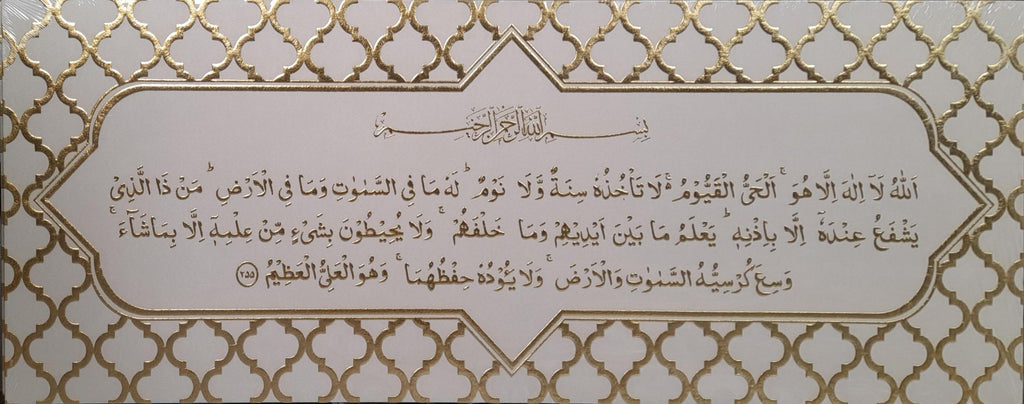 بِسْمِ اللهِ الرَّحْمٰنِ الرَّحِيْمِ
اَللهُ لَآ اِلٰهَ اِلَّا هُوَ ۚ اَلْحَيُّ الْقَيُّوْمُ ۚ لَا تَأْخُذُهٗ سِنَةٌ وَّلَا نَوْمٌ ؕ لَهٗ مَا فِي السَّمٰوٰتِ وَمَا فِي الْاَرْضِ ؕ مَنْ ذَا الَّذِيْ
يَشْفَعُ عِنْدَهٗٓ اِلَّا بِاِذْنِهٖ ؕ يَعْلَمُ مَا بَيْنَ اَيْدِيْهِمْ وَمَا خَلْفَهُمْ ۚ وَلَا يُحِيْطُوْنَ بِشَيْءٍ مِّنْ عِلْمِهٖٓ اِلَّا بِمَاشَآءَ ۚ
وَسِعَ كُرْسِيُّهُ السَّمٰوٰتِ وَالْاَرْضَ ۚ وَلَا يَـُٔوْدُهٗ حِفْظُهُمَا ۚ وَهُوَ الْعَلِيُّ الْعَظِيْمُ ﴿۲۵۵﴾